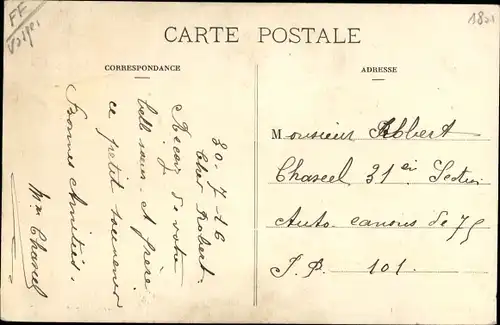 FF
Vosges
1821
CARTE POSTALE
CORRESPONDANCE
30-7-16
Cher Robert.
Recevez de votre
belle soeur et frère
ce petit souvenir
Bonnes Amitiés.
Mme Chascel
ADRESSE
Monsieur Robert
Chascel, 31e Section
Auto-canons de 75
S. P. 101.